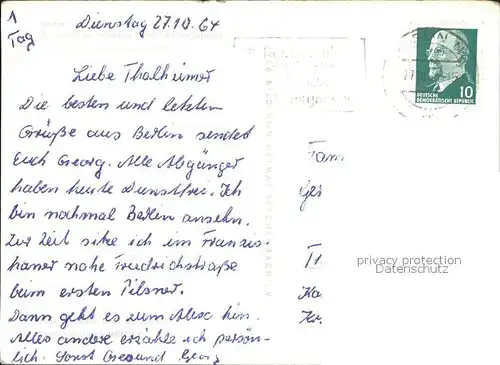 1
Tag
Dienstag 27.10.64
Liebe Thalheimer
Die besten und letzten
Grüße aus Berlin sendet
Euch Georg. Alle Abgänger
haben heute Dienstfrei. Ich
bin nochmal Berlin ansehn.
Zur Zeit sitze ich im Franzis-
kaner nahe Friedrichstraße
beim ersten Pilsner.
Dann geht es zum Alex hin.
Alles andere erzähle ich persön-
lich. Sonst Gesund Georg
DEUTSCHE
DEMOKRATISCHE REPUBLIK
10
Fam
privacy protection
Datenschutz